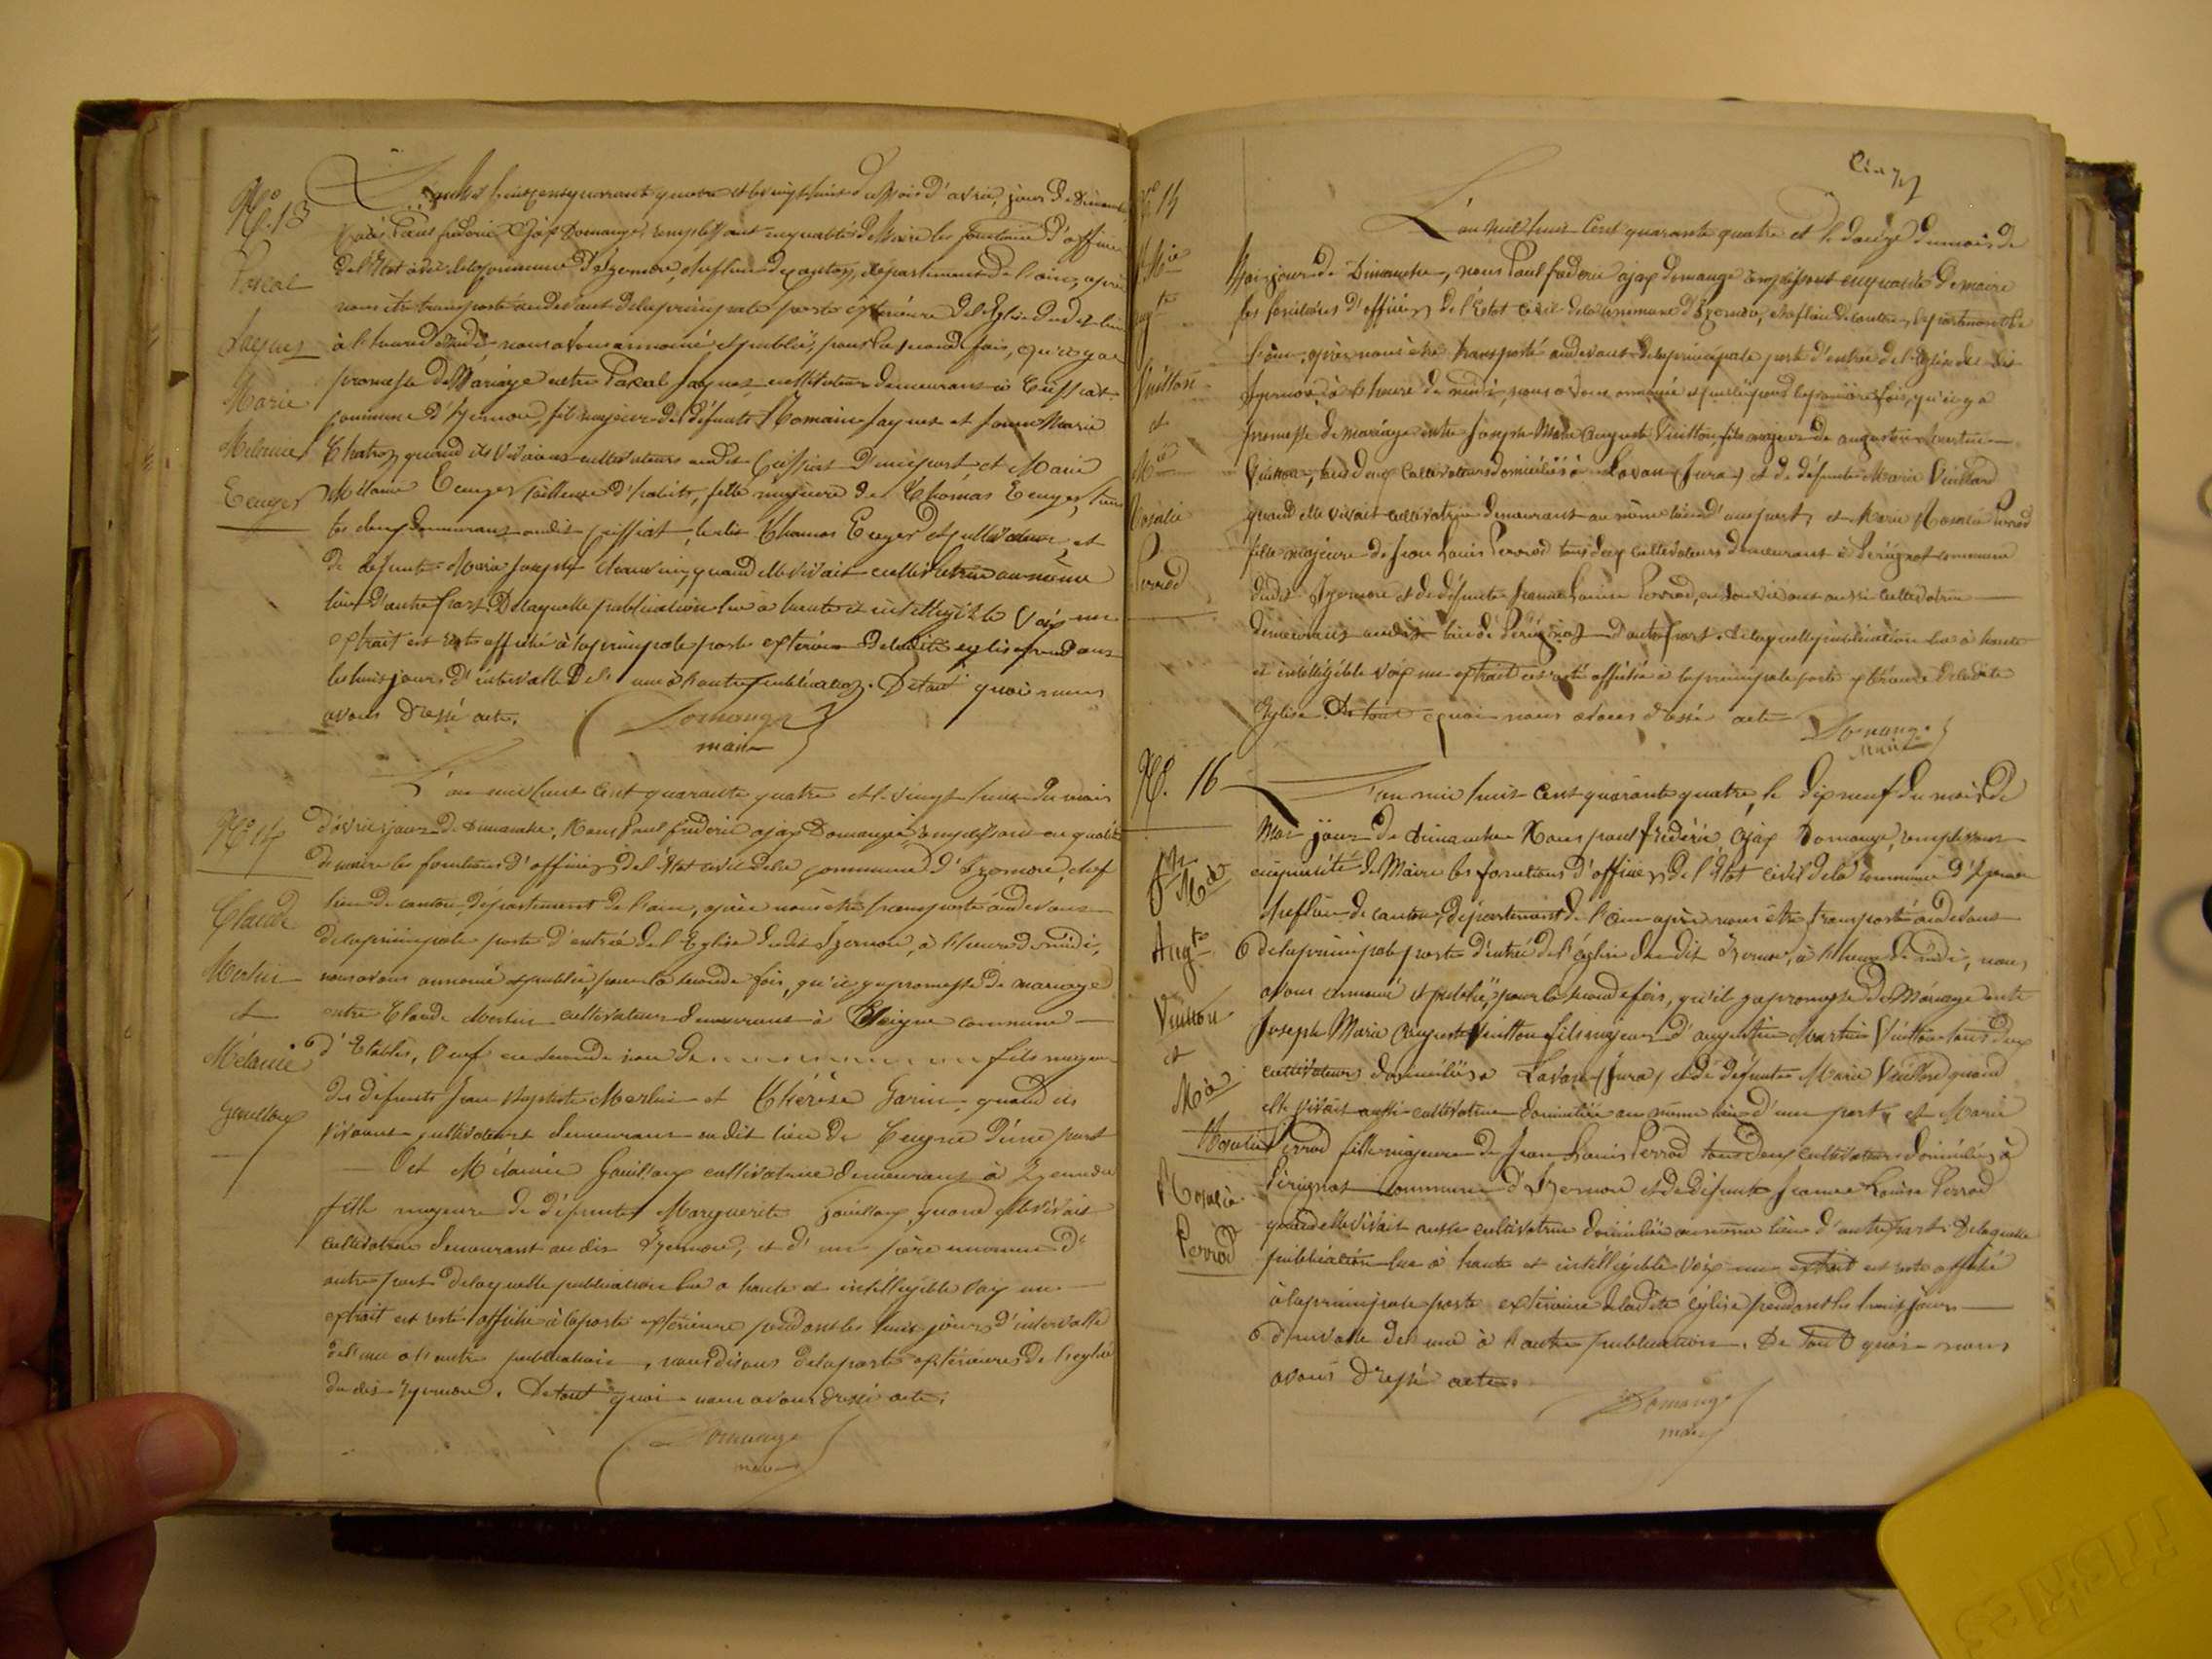 N.º 13
Pascal
Jaquet
Marie
Mélanie
Euger
L'an mil huit cent quarante quatre et le vingt huit du mois d'avril, jour de Dimanche
Nous Paul fréderic Ajax Domange remplissant en qualité de Maire les fonctions d'officier
de l'Etat civil de la commune d'Izernore, chef lieu de canton, département de l'ain, après
nous être transporté au devant de la principale porte extérieure de l'Eglise dudit lieu
à l'heure de midi nous avons annoncé et publié, pour la seconde fois, qu'il y a
promesse de Mariage entre Pascal Jaquet cultivateur demeurant à Ceissiat
commune d'Izernore, fils majeur des défunts Romain Jaquet et Marie
quand ils vivaient cultivateurs audit Ceissiat d'une part et Marie
Mélanie Euger tailleuse d'habits, fille majeure de Thomas Euger, tous
les deux demeurant audit Ceissiat, ledit Thomas Euger cultivateur, et
de défunte Marie Josephe quand elle vivait cultivatrice au même
lieu d'autre part. De laquelle publication lue à haute et intelligible voix un
extrait est resté affiché à la principale porte extérieure de ladite église pendant
les huit jours d'intervalle de l'une à l'autre publication. De tout quoi nous
avons dressé acte.
Domange
maire
N.º 14
Claude
Merlin
et
Mélanie
Gouilloux
L'an mil huit cent quarante quatre et le vingt huit du mois
d'avril jour de Dimanche, Nous Paul fréderic ajax Domange remplissant en qualité
de maire les fonctions d'officier de l'état civil de la commune d'Izernore, chef
lieu de canton, département de l'ain, après nous être transporté au devant
de la principale porte d'entrée de l'Eglise dudit Izernore, à l'heure de midi,
nous avons annoncé et publié, pour la seconde fois, qu'il y a promesse de mariage
entre Claude Merlin cultivateur demeurant à commune
d'Etables, Veuf en seconde noce de fils majeur
des défunts Jean Baptiste Merlin et Thérèse Garin quand ils
vivaient cultivateurs demeurant audit lieu de d'une part
Et Mélanie Gouilloux cultivatrice demeurant à Izernore
fille majeure de défunte Marguerite Gouilloux, quand elle vivait
cultivatrice demeurant au dit Izernore, et d'un père inconnu d'
autre part de laquelle publication lue a haute et intelligible voix un
extrait est resté affiché à la porte extérieure pendant les huit jours d'intervalle
de l'une a l'autre publication, nous disons de la porte extérieure de l'eglise
du dit Izernore. De tout quoi nous avons dressé acte.
Domange
maire
Cinq
Mie
Augte
Vuitton
et
Mie
Rosalie
Perrod
L'an mil huit cent quarante quatre et le douze du mois de
Mai jour de Dimanche, nous Paul fréderic ajax domange remplissant en qualité de maire
les fonctions d'officier de l'Etat Civil de la commune d'Izernore, chef lieu de canton, département de
l'ain, après nous être transporté au devant de la principale porte d'entrée de l'Eglise du dit
Izernore, à l'heure de midi, nous avons annoncé et publié pour la première fois, qu'il y a
promesse de mariage entre Joseph Marie Auguste Vuitton, fils majeur de augustin martin
Vuitton, tous deux cultivateurs domiciliés à Lavan (Jura) et de défunte Marie Vuillard
quand elle vivait cultivatrice demeurant au même lieu d'une part, et Marie Rosalie Perrod
fille majeure de Jean Louis Perrod tous deux cultivateurs demeurant à Pérignat commune
dudit Izernore et de défunte Jeanne Louise Perrod, en son vivant aussi cultivatrice
demeurant audit lieu de Pérignat d'autre part. De laquelle publication lue à haute
et intelligible voix un extrait est resté affiché à la principale porte extérieure de ladite
Eglise. De tout quoi nous avons dressé acte
Domange
maire
N.º 16
Jh Mie
Augte
Vuitton
et
Mie
Rosalie
Perrod
L'an mil huit cent quarante quatre, le dix neuf du mois de
Mai jour de dimanche Nous paul fréderic Ajax Domange, remplissant
en qualité de Maire les fonctions d'officier de l'état civil de la commune d'Izernore
chef lieu de canton, département de l'ain après nous être transporté au devant
de la principale porte d'entrée de l'église du dit Izernore, à l'heure de midi, nous
avons annoncé et publié, pour la seconde fois, qu'il y a promesse de Mariage entre
Joseph Marie Auguste Vuitton fils majeur d'augustin Martin Vuitton tous deux
cultivateurs domiciliés à Lavan (Jura) et de défunte Marie Vuillard quand
elle vivait aussi cultivatrice domiciliée au même lieu d'une part, et Marie
Rosalie Perrod fille majeure de Jean Louis Perrod tous deux cultivateurs domiciliés à
Pérignat commune d'Izernore et de défunte Jeanne Louise Perrod
quand elle vivait aussi cultivatrice domiciliée au même lieu d'autre part. De laquelle
publication lue à haute et intelligible voix un extrait est resté affiché
à la principale porte extérieure de ladite église pendant les huit jours
d'intervalle de l'une à l'autre publication. De tout quoi nous
avons dressé acte.
Domange
maire